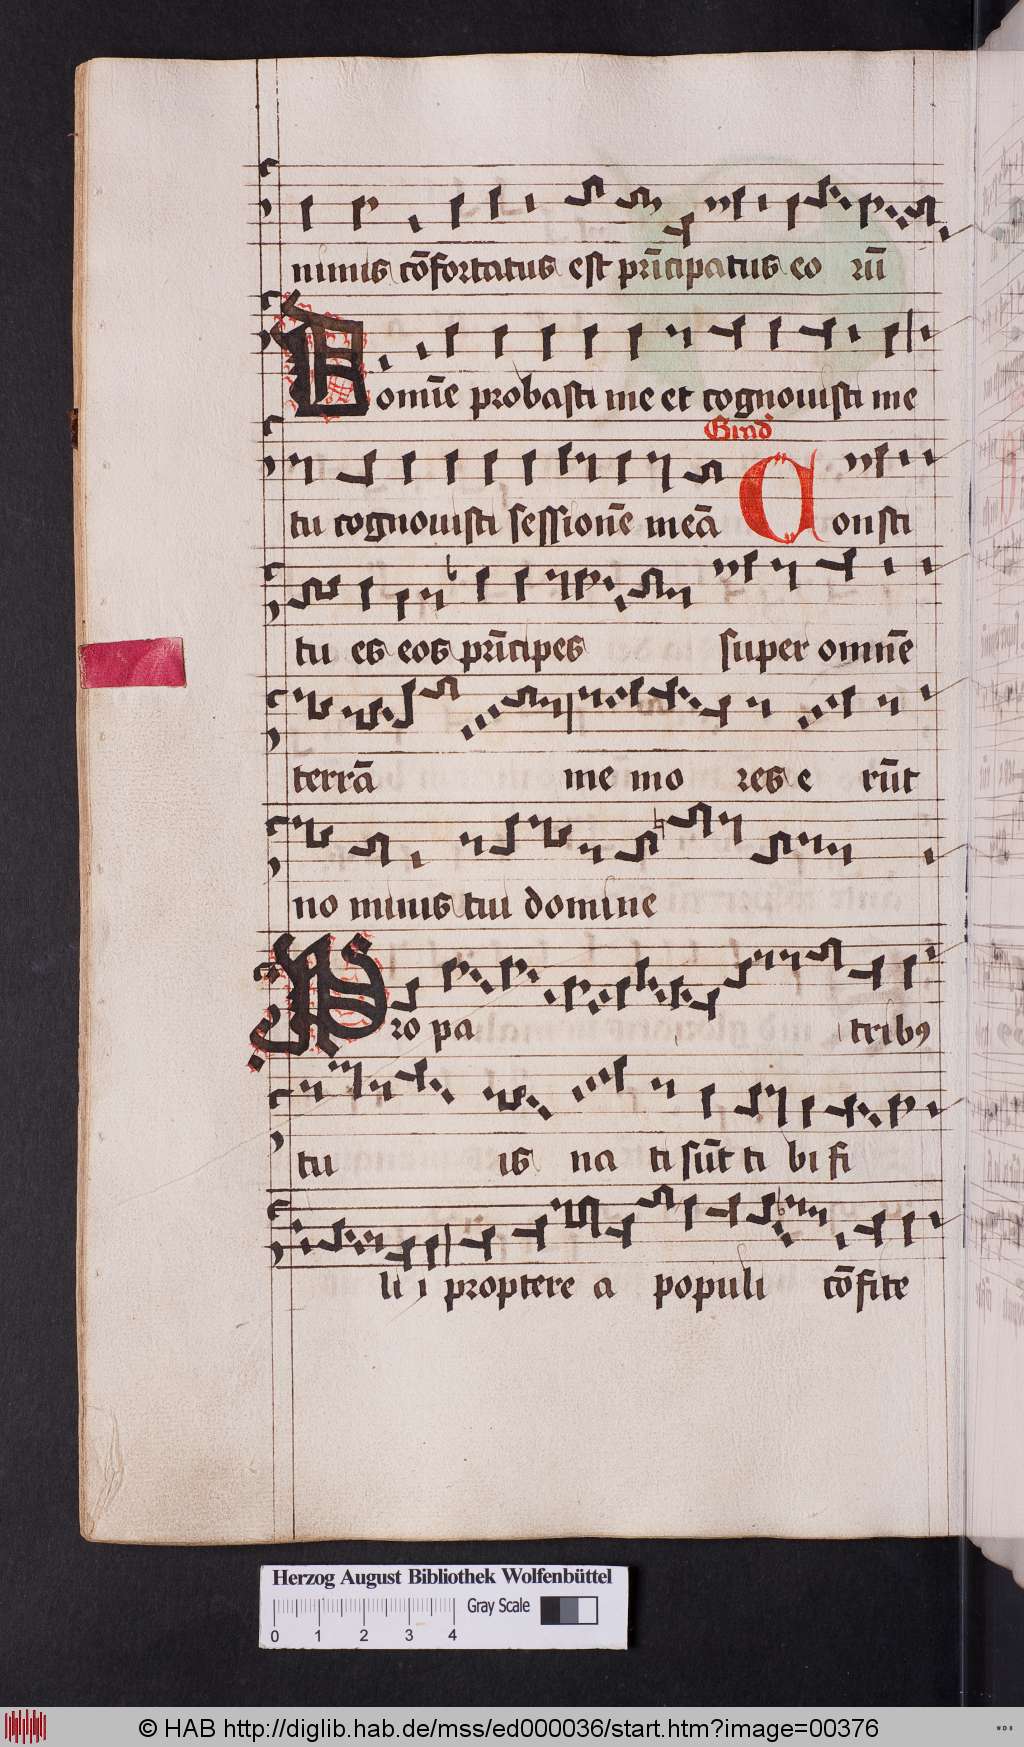 nimis cōfortatus est prīcipatus eo rū
Domīe probasti me et cognouisti me
Grad'
tu cognouisti sessionē meā Consti
tu es eos prīcipes super omnē
terrā me mo res e rūt
no minis tui domine
Pro pa tribꝰ
tu is na ti sūt ti bi fi
li i proptere a populi cōfite
Herzog August Bibliothek Wolfenbüttel
Gray Scale
0 1 2 3 4
© HAB http://diglib.hab.de/mss/ed000036/start.htm?image=00376